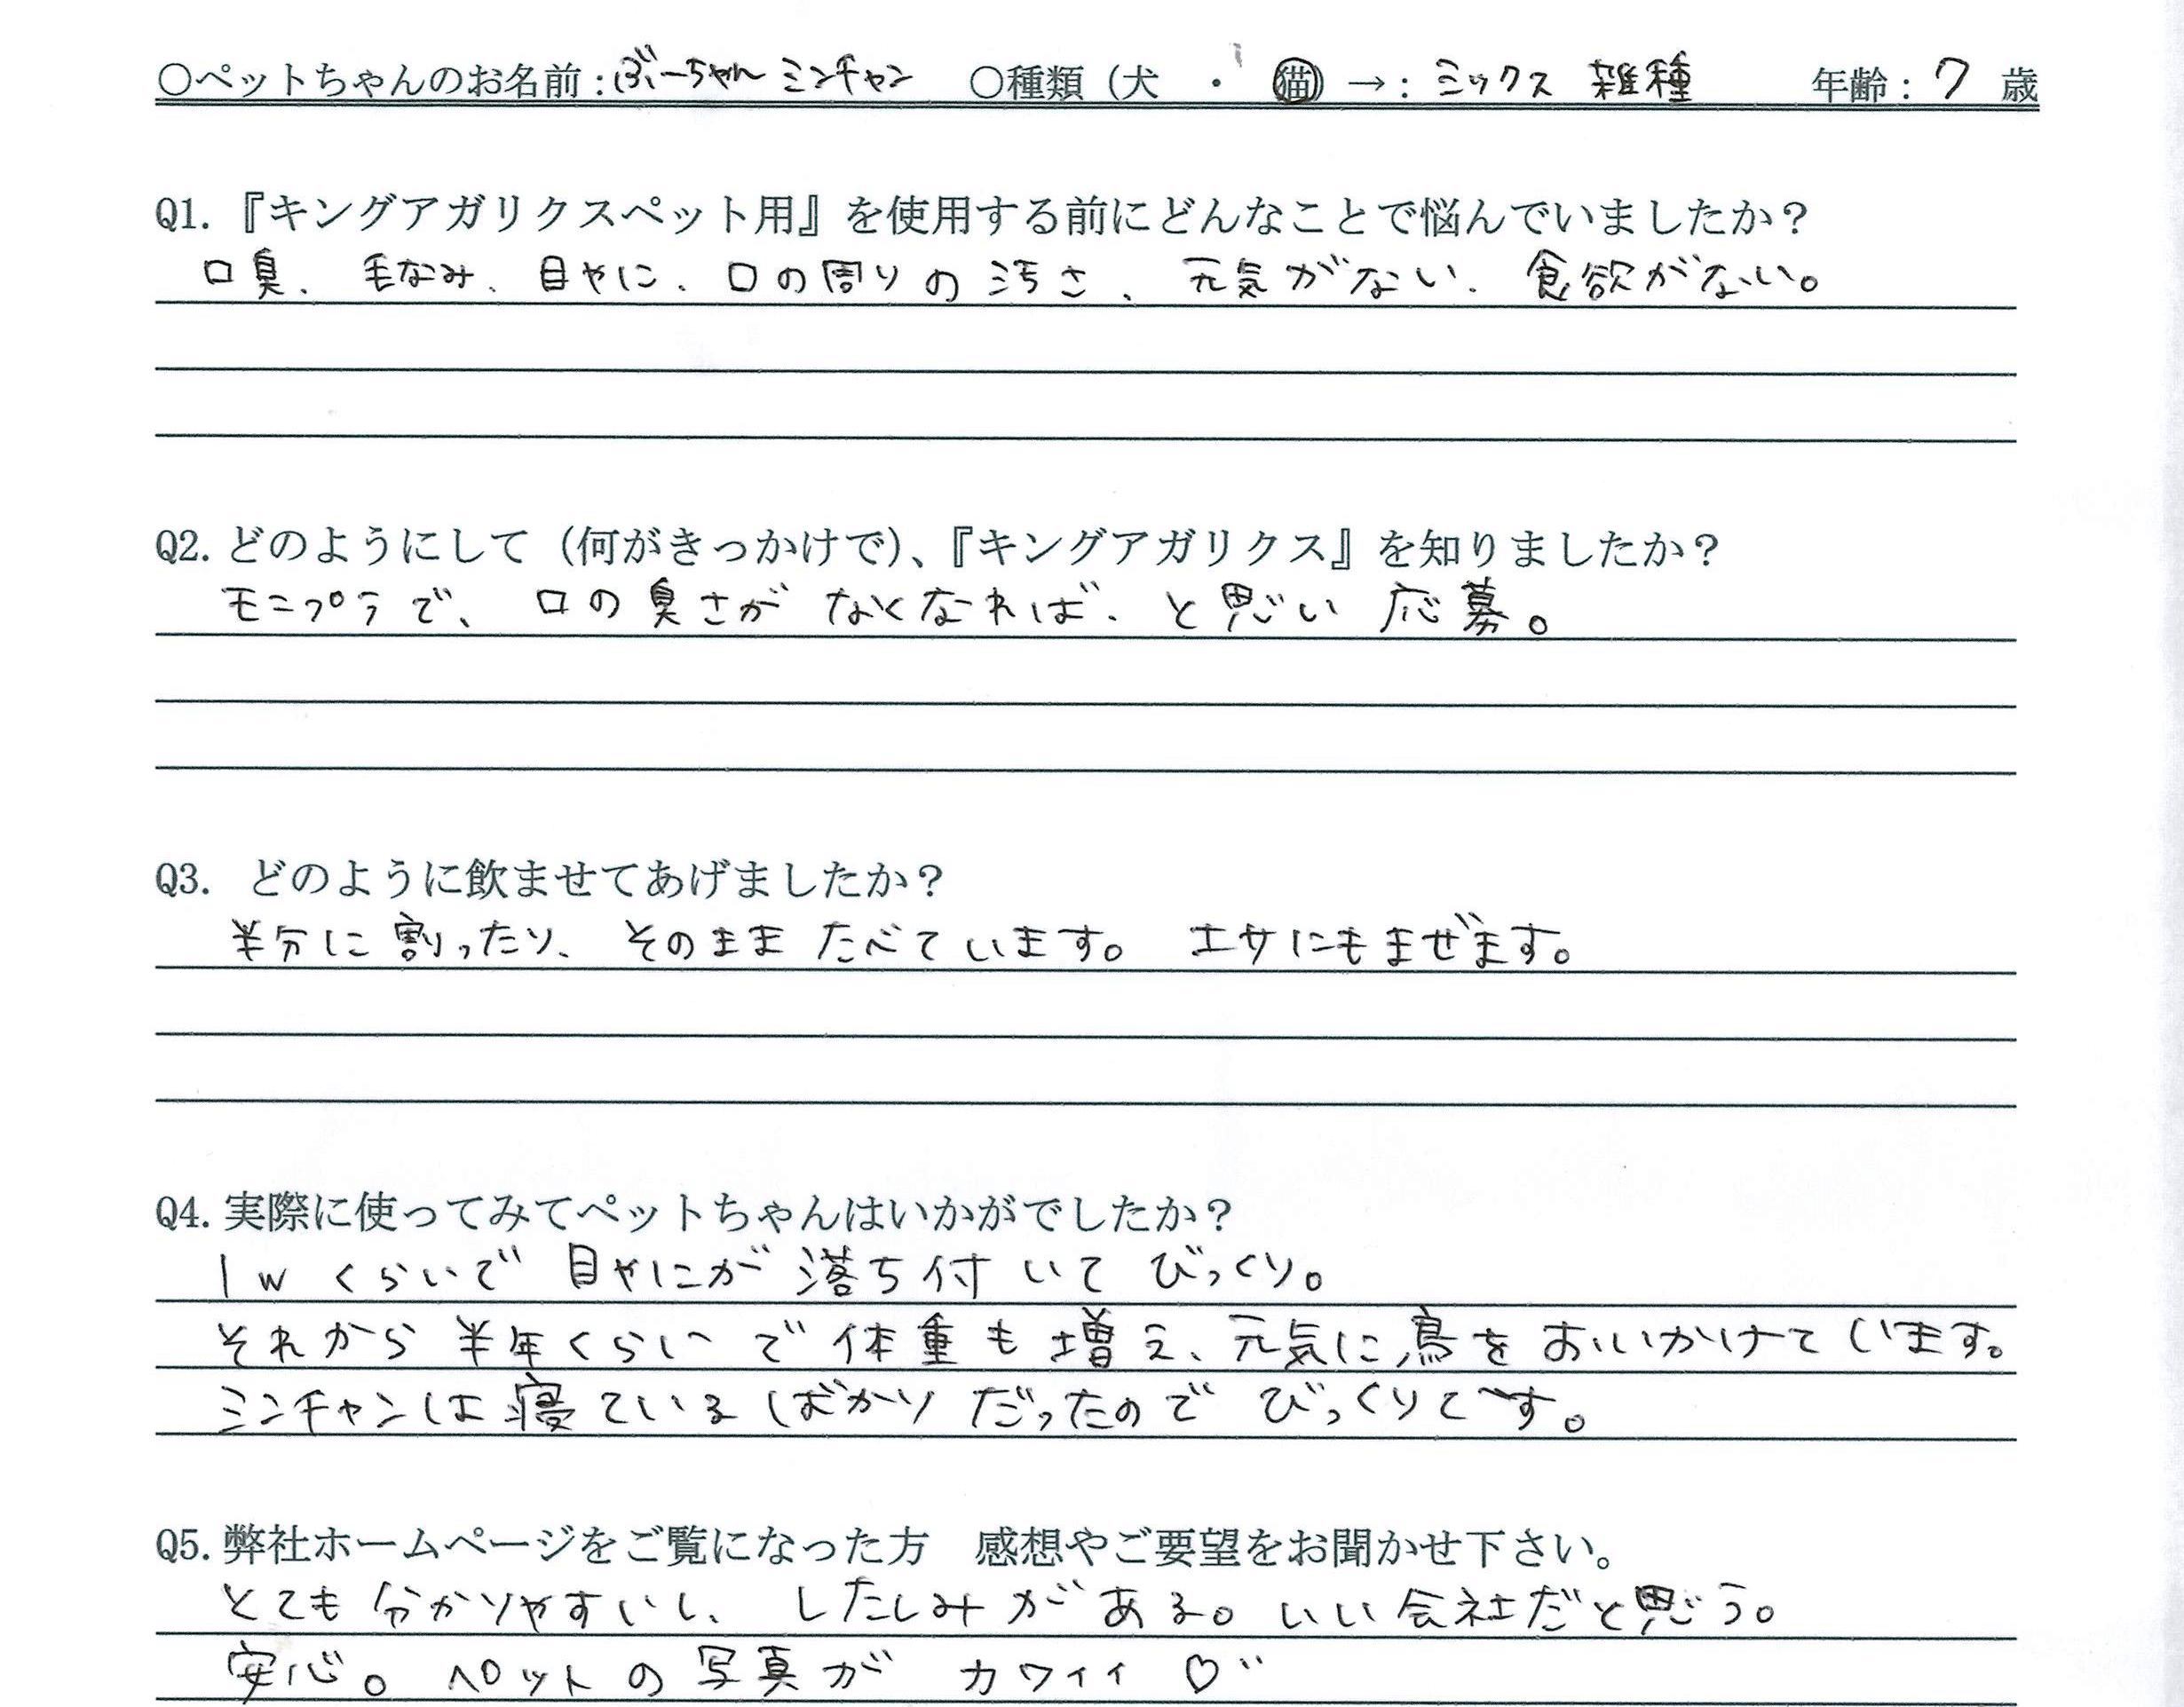 ○ペットちゃんのお名前：ぶーちゃん ミンチャン ○種類（犬 ・ 猫）→：ミックス 雑種 年齢：7 歳
Q1.『キングアガリクスペット用』を使用する前にどんなことで悩んでいましたか？
口臭、毛なみ、目やに、口の周りの汚さ、元気がない、食欲がない。
Q2.どのようにして（何がきっかけで）、『キングアガリクス』を知りましたか？
モニプラで、口の臭さがなくなれば、と思い 応募。
Q3. どのように飲ませてあげましたか？
半分に割ったり、そのまま たべています。 エサにもまぜます。
Q4.実際に使ってみてペットちゃんはいかがでしたか？
1w くらいで 目やにが 落ち付いて びっくり。
それから 半年くらいで 体重も増え、元気に鳥をおいかけています。
ミンチャンは寝ているばかりだったので びっくりです。
Q5.弊社ホームページをご覧になった方 感想やご要望をお聞かせ下さい。
とても分かりやすいし、したしみがある。いい会社だと思う。
安心。ペットの写真が カワイイ♡